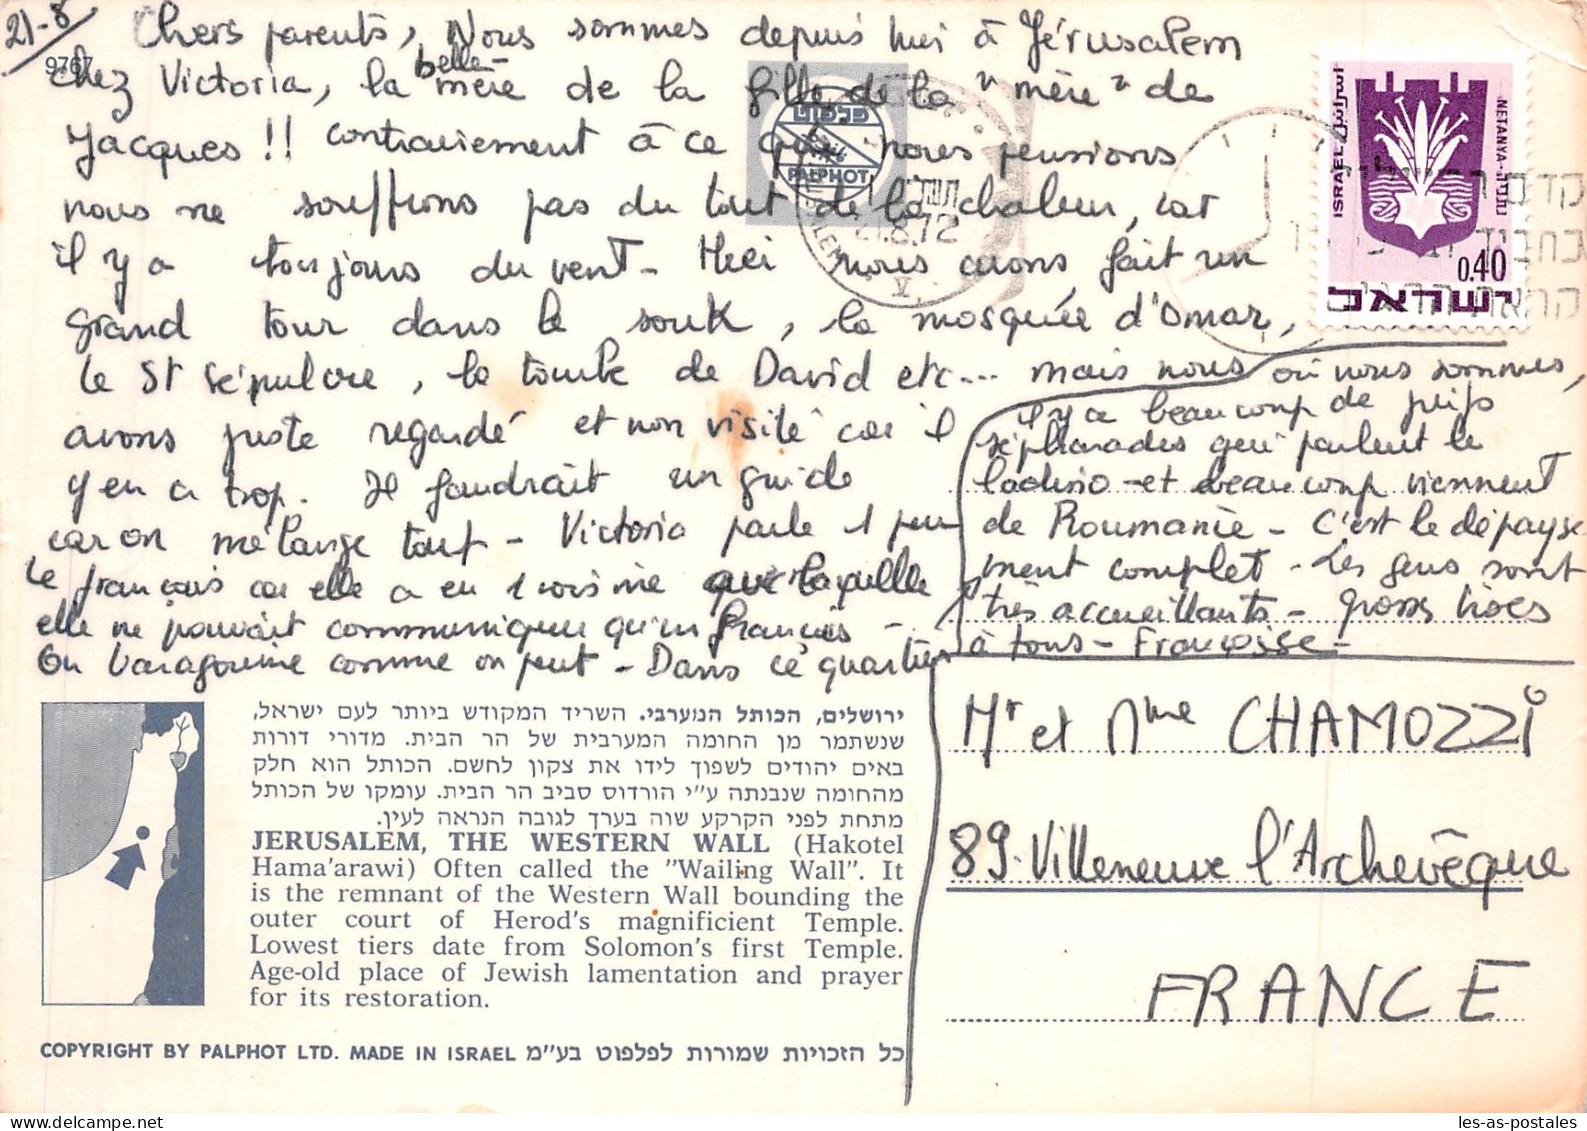 21-8
Chers parents, Nous sommes depuis hier à Jérusalem
9767
chez Victoria, la belle-mère de la fille de la "mère" de
Jacques !! contrairement à ce que nous pensions
nous ne souffrons pas du tout de la chaleur, car
il y a toujours du vent - Hier nous avons fait un
grand tour dans le souk, la mosquée d'Omar,
le St sépulcre, la tombe de David etc... mais nous
avons juste regardé et non visité car il
y en a trop. Il faudrait un guide
car on mélange tout - Victoria parle 1 peu
le français car elle a eu 1 voisine avec laquelle
elle ne pouvait communiquer qu'en français -
On baragouine comme on peut - Dans ce quartier
où nous sommes,
il y a beaucoup de juifs
sépharades qui parlent le
ladino - et beaucoup viennent
de Roumanie - C'est le dépayse
ment complet - Les gens sont
très accueillants - grosses bises
à tous - Françoise -
פלפוט
PALPHOT
21.8.72
ISRAEL اسرائيل
NETANYA-נתניה
0.40
ישראל
Mr et Mme CHAMOZZI
89. Villeneuve l'Archevêque
FRANCE
ירושלים, הכותל המערבי. השריד המקודש ביותר לעם ישראל,
שנשתמר מן החומה המערבית של הר הבית. מדורי דורות
באים יהודים לשפוך לידו את צקון לחשם. הכותל הוא חלק
מהחומה שנבנתה ע״י הורדוס סביב הר הבית. עומקו של הכותל
מתחת לפני הקרקע שוה בערך לגובה הנראה לעין.
JERUSALEM, THE WESTERN WALL (Hakotel
Hama'arawi) Often called the "Wailing Wall". It
is the remnant of the Western Wall bounding the
outer court of Herod's magnificient Temple.
Lowest tiers date from Solomon's first Temple.
Age-old place of Jewish lamentation and prayer
for its restoration.
COPYRIGHT BY PALPHOT LTD. MADE IN ISRAEL כל הזכויות שמורות לפלפוט בע״מ
les-as-postales